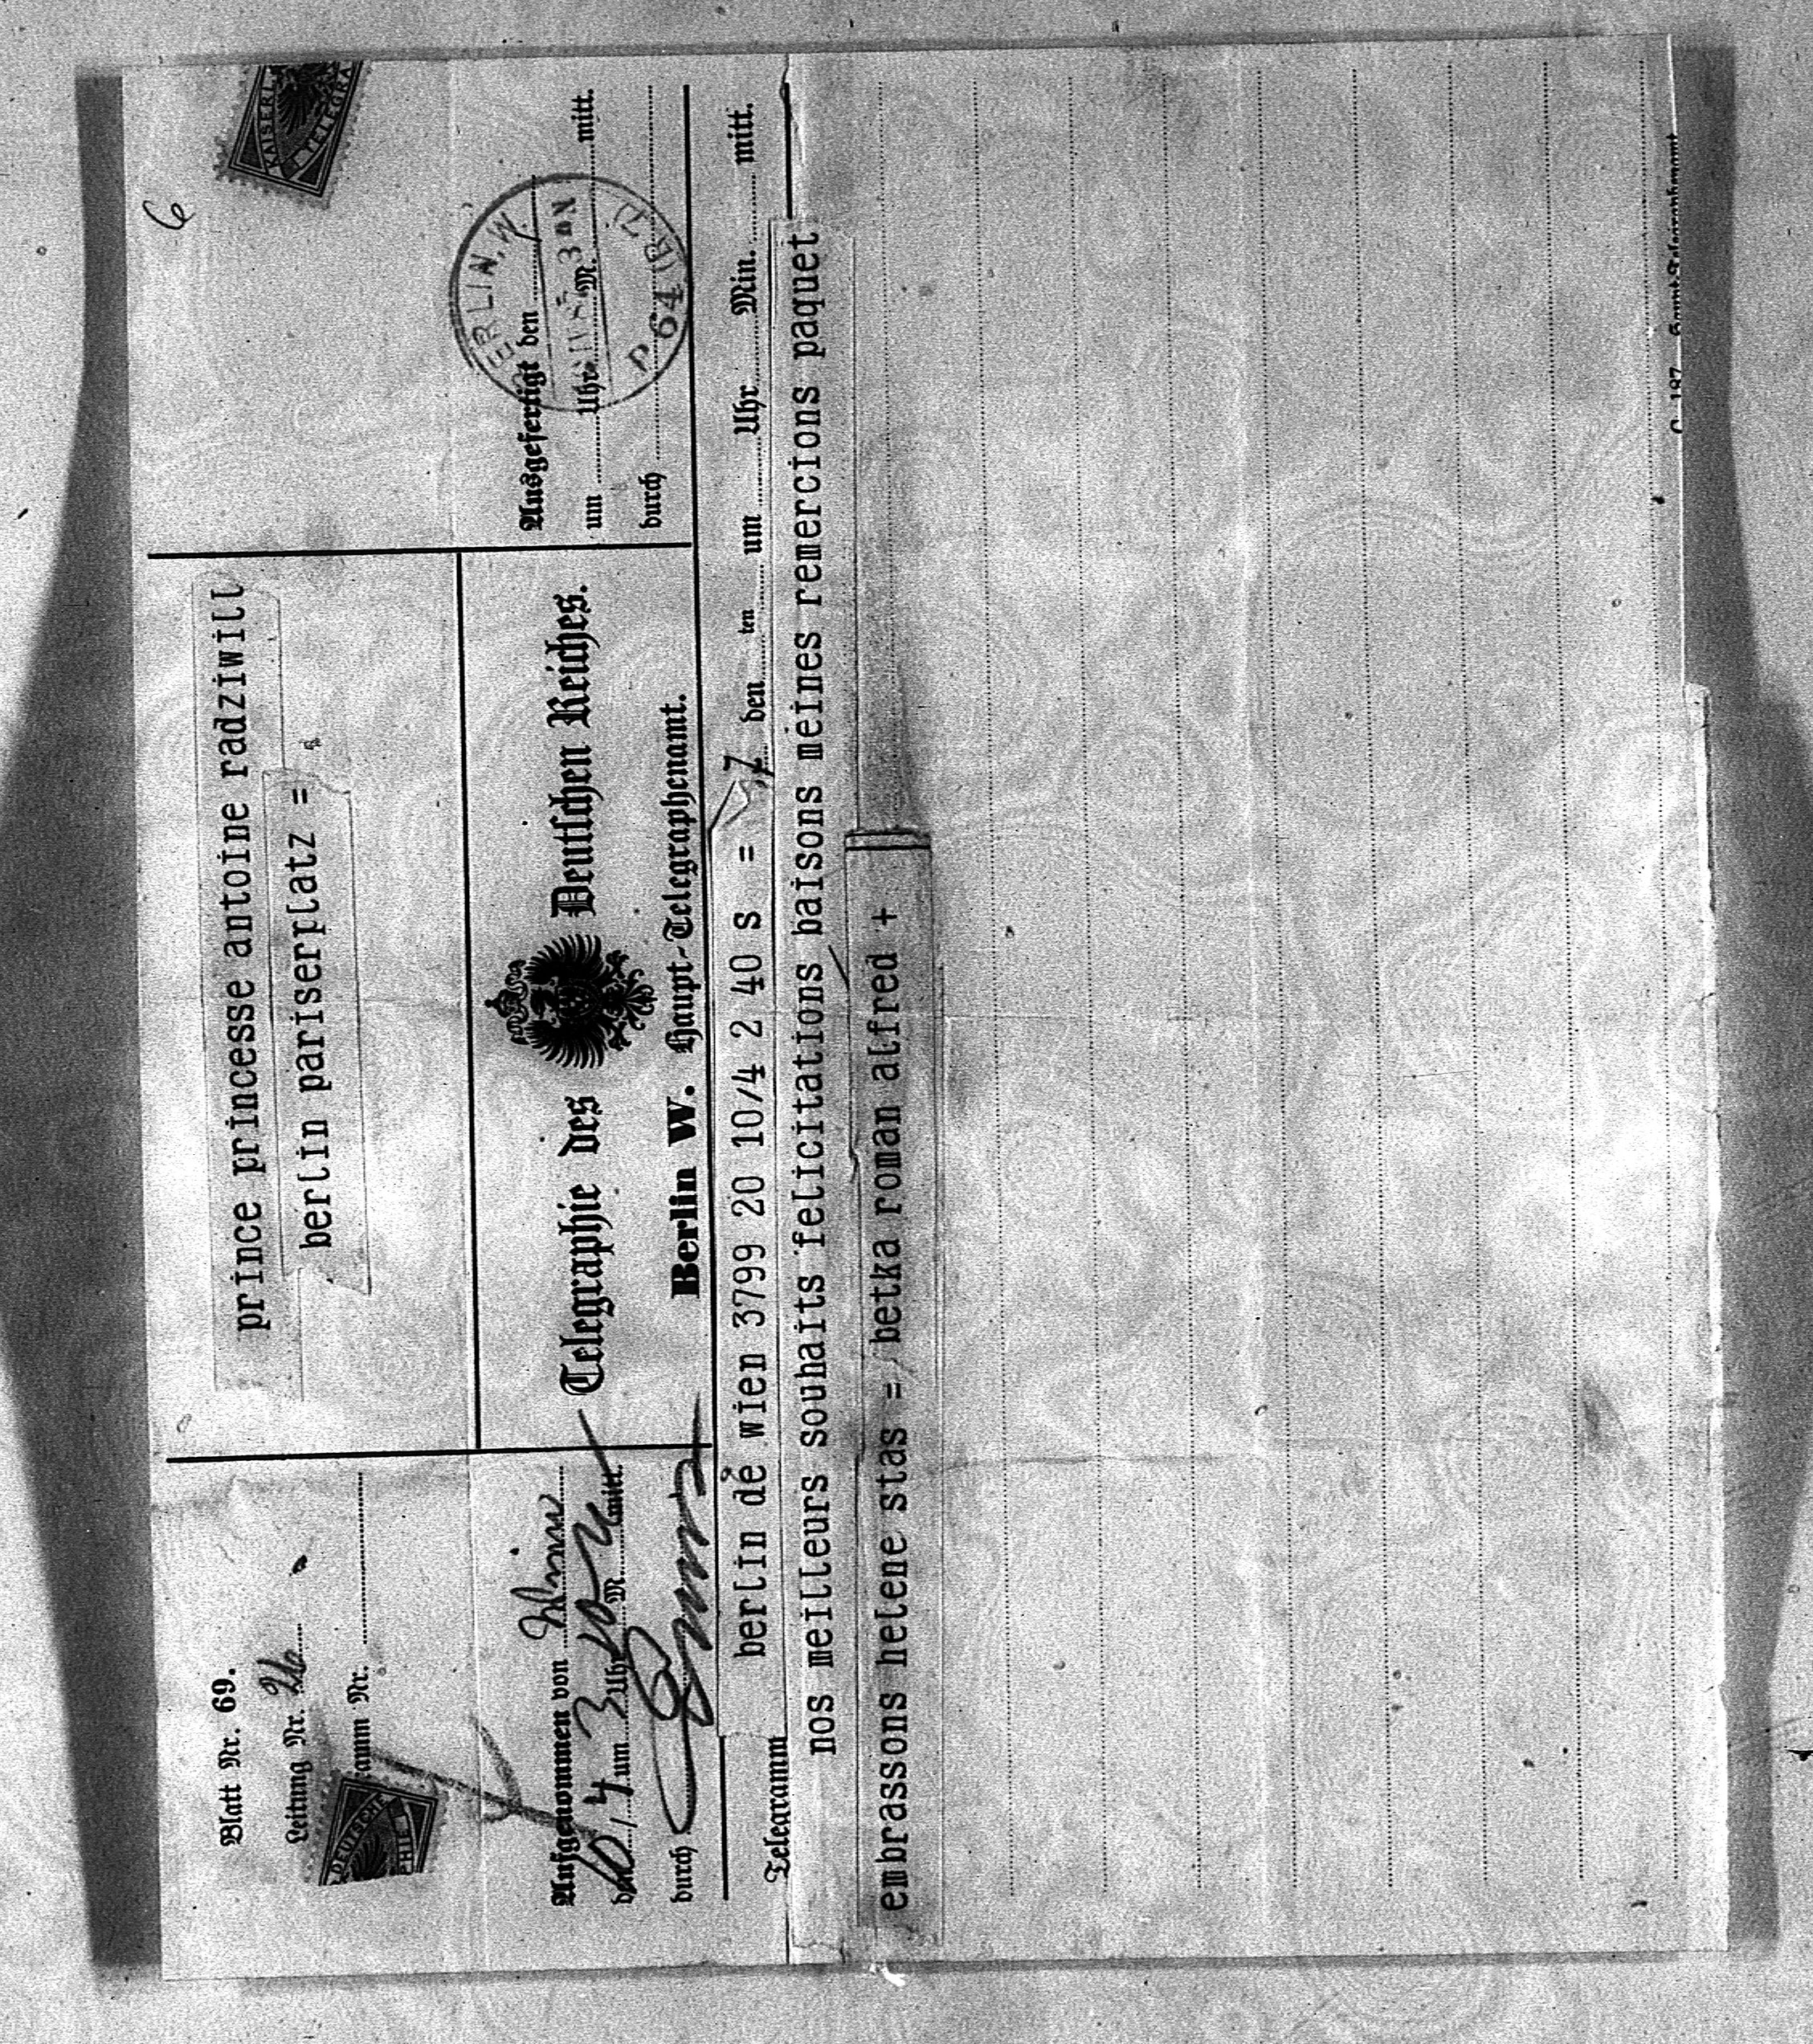 6
KAISERL.
TELEGRA
Blatt Nr. 69.
Leitung Nr. 26
amm Nr.
DEUTSCHE
PHIE
prince princesse antoine radziwill
berlin pariserplatz =
Aufgenommen von Wien
10/4 um 3 Uhr 10 M. mitt.
durch
Telegraphie des Deutschen Reiches.
Berlin W. Haupt-Telegraphenamt.
Ausgefertigt den
um Uhr M. mitt.
durch
BERLIN, W.
3 N
P 64 (R 7)
Telegramm
berlin de wien 3799 20 10/4 2 40 s = 7 den ten um Uhr Min. mitt.
nos meilleurs souhaits felicitations baisons meines remercions paquet
embrassons helene stas = betka roman alfred +
C. 187. Haupt-Telegraphenamt